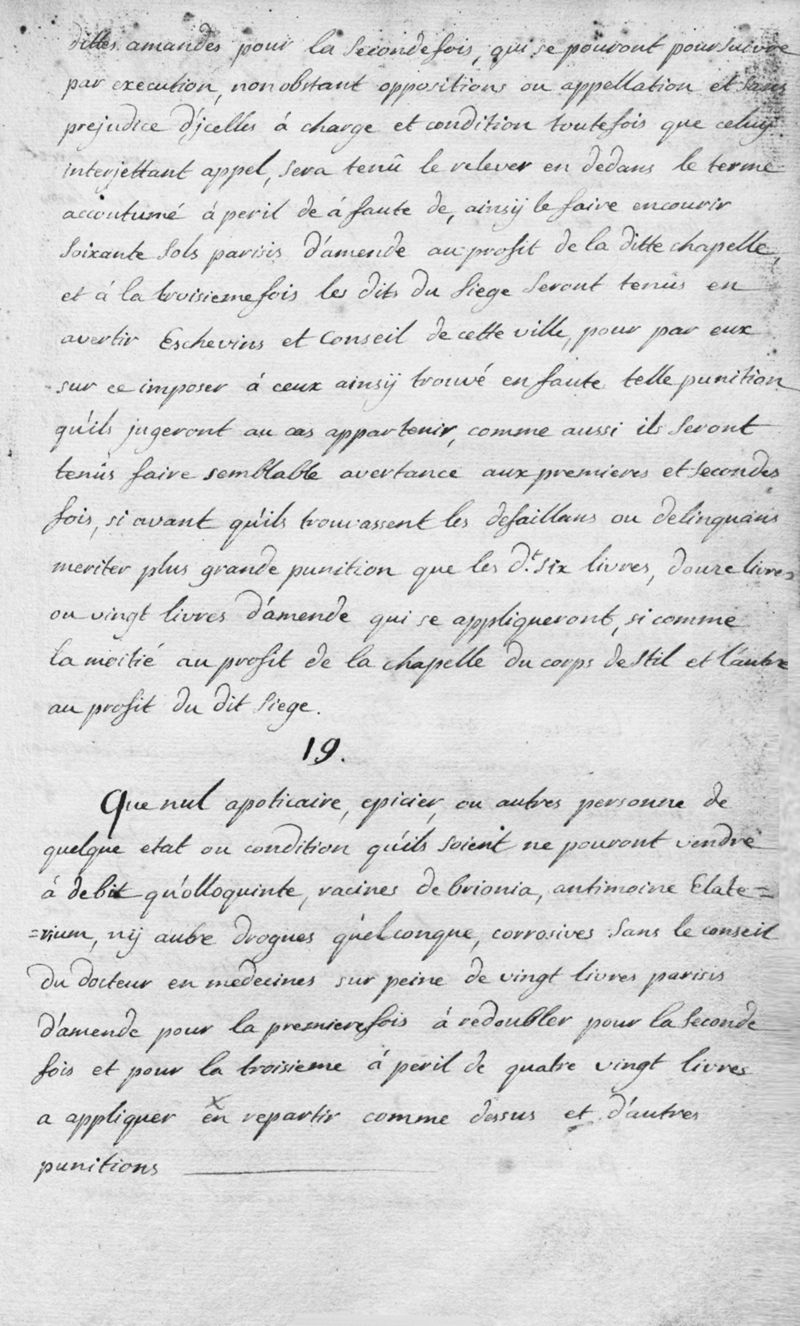 dittes amandes pour la seconde fois, qui se pouront poursuivre
par execution, nonobstant oppositions ou appellation et sans
prejudice d'jcelles á charge et condition toutefois que celuy
interjettant appel, sera tenû le relever en dedans le terme
accoutumé á peril de á faute de, ainsÿ le faire encourir
soixante sols parisis d'amende au profit de la ditte chapelle,
et á la troisieme fois les dits du siege seront tenûs en
avertir Eschevins et Conseil de cette ville, pour par eux
sur ce imposer á ceux ainsÿ trouvé en faute telle punition
qu'ils jugeront au cas appartenir, comme aussi ils seront
tenûs faire semblable avertance aux premieres et secondes
fois, si avant qu'ils trouvassent les defaillans ou delinquans
meriter plus grande punition que les d.t six livres, douze livres
ou vingt livres d'amende qui se appliqueront, si comme
la moitié au profit de la chapelle du corps de stil et l'autre
au profit du dit siege.
19.
Que nul apoticaire, epicier, ou autres personne de
quelque etat ou condition qu'ils soient ne pouront vendre
á debit qu'olloquinte, racines de brionia, antimoine Elate=
=rium, nÿ autre drogues quelconque, corrosives sans le conseil
du docteur en medecines sur peine de vingt livres parisis
d'amende pour la premiere fois á redoubler pour la seconde
fois et pour la troisieme á peril de quatre vingt livres
a appliquer en repartir comme dessus et d'autres
punitions